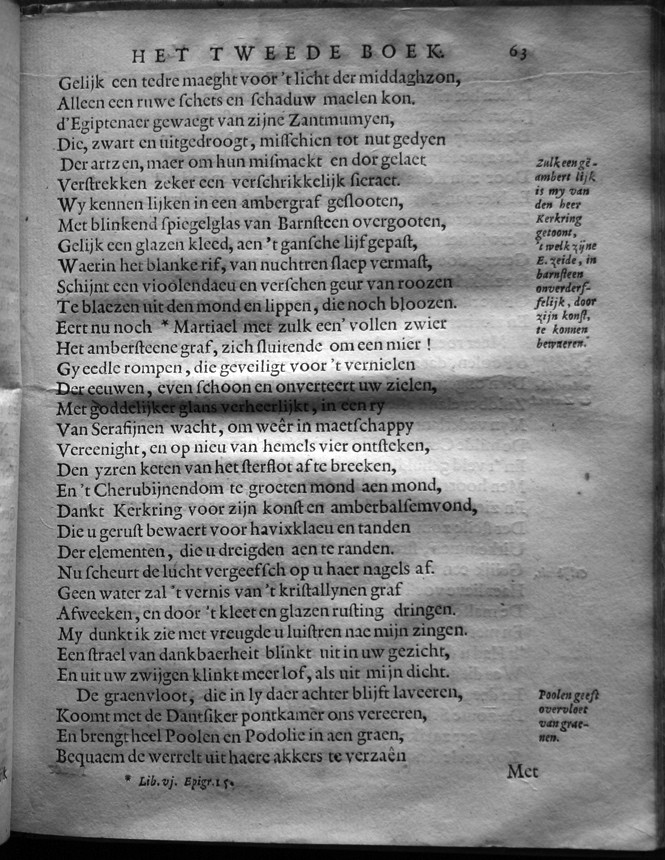 HET TWEEDE BOEK. 63
Gelijk een tedre maeght voor 't licht der middaghzon,
Alleen een ruwe ſchets en ſchaduw maelen kon.
d'Egiptenaer gewaegt van zijne Zantmumyen,
Die, zwart en uitgedroogt, miſſchien tot nut gedyen
Der artzen, maer om hun miſmaekt en dor gelaet
Verſtrekken zeker een verſchrikkelijk ſieraet.
Wy kennen lijken in een ambergraf geſlooten,
Met blinkend ſpiegelglas van Barnſteen overgooten,
Gelijk een glazen kleed, aen 't ganſche lijf gepaſt,
Waerin het blanke rif, van nuchtren ſlaep vermaſt,
Schijnt een vioolendaeu en verſchen geur van roozen
Te blaezen uit den mond en lippen, die noch bloozen.
Eert nu noch * Martiael met zulk een' vollen zwier
Het amberſteene graf, zich ſluitende om een mier!
Gy eedle rompen, die geveiligt voor 't vernielen
Der eeuwen, even ſchoon en onverteert uw zielen,
Met goddelijker glans verheerlijkt, in een ry
Van Serafijnen wacht, om weêr in maetſchappy
Vereenight, en op nieu van hemels vier ontſteken,
Den yzren keten van het ſterflot af te breeken,
En 't Cherubijnendom te groeten mond aen mond,
Dankt Kerkring voor zijn konſt en amberbalſemvond,
Die u geruſt bewaert voor havixklaeu en tanden
Der elementen, die u dreigden aen te randen.
Nu ſcheurt de lucht vergeeffch op u haer nagels af.
Geen water zal 't vernis van 't kriſtallynen graf
Afweeken, en door 't kleet en glazen ruſting dringen.
My dunkt ik zie met vreugde u luiſtren nae mijn zingen.
Een ſtrael van dankbaerheit blinkt uit in uw gezicht,
En uit uw zwijgen klinkt meer lof, als uit mijn dicht.
De graenvloot, die in ly daer achter blijft laveeren,
Koomt met de Dantſiker pontkamer ons vereeren,
En brengt heel Poolen en Podolie in aen graen,
Bequaem de werrelt uit haere akkers te verzaên
Met
* Lib. vj. Epigr. 15.
Zulk een gē-
ambert lijk
is my van
den heer
Kerkring
getoont,
't welk zijne
E. zeide, in
barnſteen
onverderf-
felijk, door
zijn konſt,
te konnen
bewaeren.
Poolen geeft
overvloet
van grae-
nen.